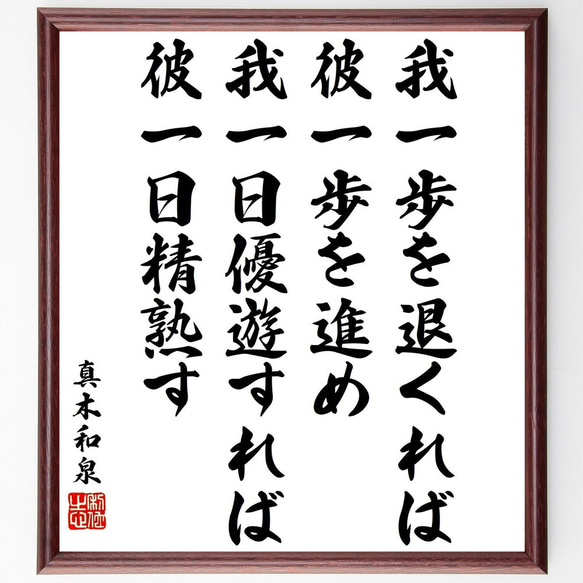 我一歩を退くれば
彼一歩を進め
我一日優遊すれば
彼一日精熟す
真木和泉